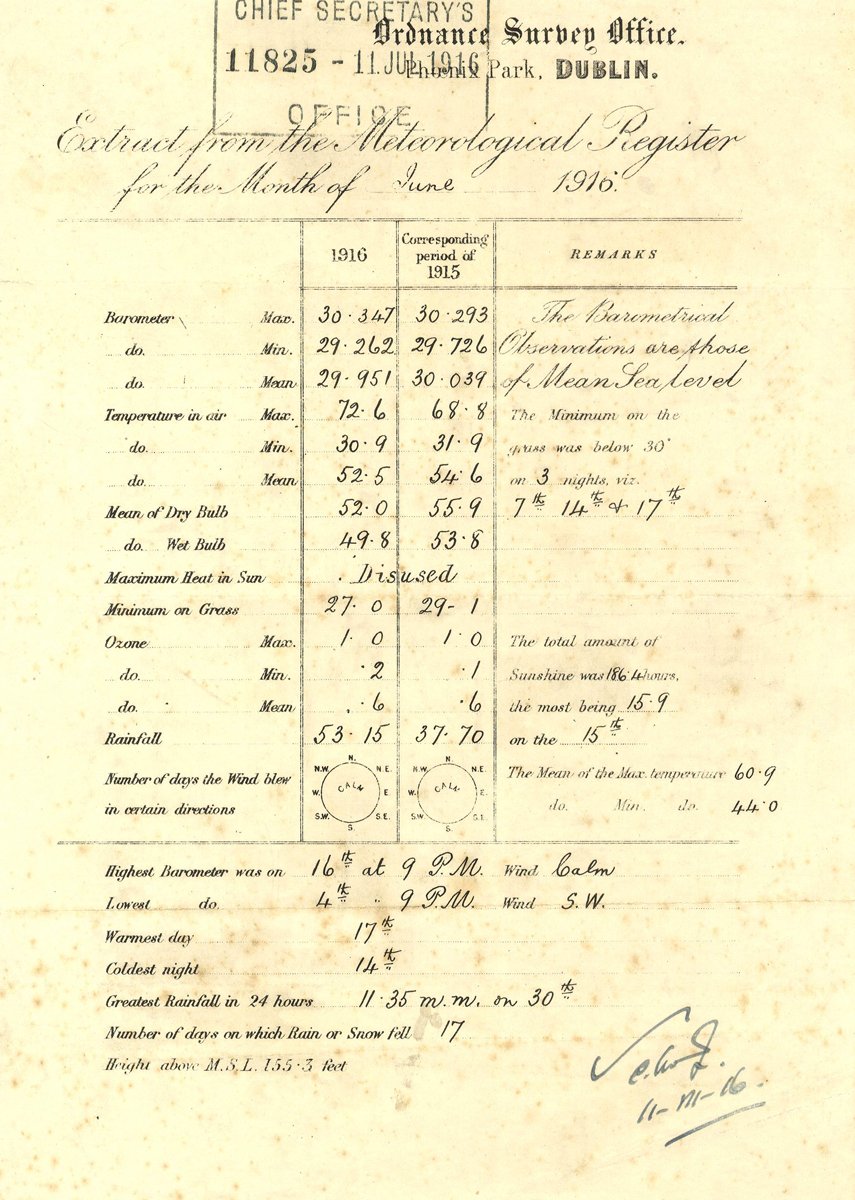 CHIEF SECRETARY'S
Ordnance Survey Office.
11825 - 11 JUL 1916
Phoenix Park, DUBLIN.
OFFICE
Extract from the Meteorological Register
for the Month of June 1916.
1916 Corresponding period of 1915 REMARKS
Barometer Max. 30.347 30.293 The Barometrical
do. Min. 29.262 29.726 Observations are those
do. Mean 29.951 30.039 of Mean Sea Level
Temperature in air Max. 72.6 68.8 The Minimum on the
do. Min. 30.9 31.9 grass was below 30°
do. Mean 52.5 54.6 on 3 nights, viz.
Mean of Dry Bulb 52.0 55.9 7th 14th & 17th
do. Wet Bulb 49.8 53.8
Maximum Heat in Sun Disused
Minimum on Grass 27.0 29-1
Ozone Max. 1.0 1.0 The total amount of
do. Min. .2 .1 Sunshine was 186.4 hours,
do. Mean .6 .6 the most being 15.9
Rainfall 53.15 37.70 on the 15th
N. N.
N.W. N.E. N.W. N.E.
Number of days the Wind blew The Mean of the Max. temperature 60.9
W. CALM E. W. CALM E.
in certain directions do. Min. do. 44.0
S.W. S.E. S.W. S.E.
S. S.
Highest Barometer was on 16th at 9 P.M. Wind Calm
Lowest do. 4th " 9 P.M. Wind S.W.
Warmest day 17th
Coldest night 14th
Greatest Rainfall in 24 hours 11.35 m.m. on 30th
Number of days on which Rain or Snow fell 17
Height above M.S.L. 155.3 feet